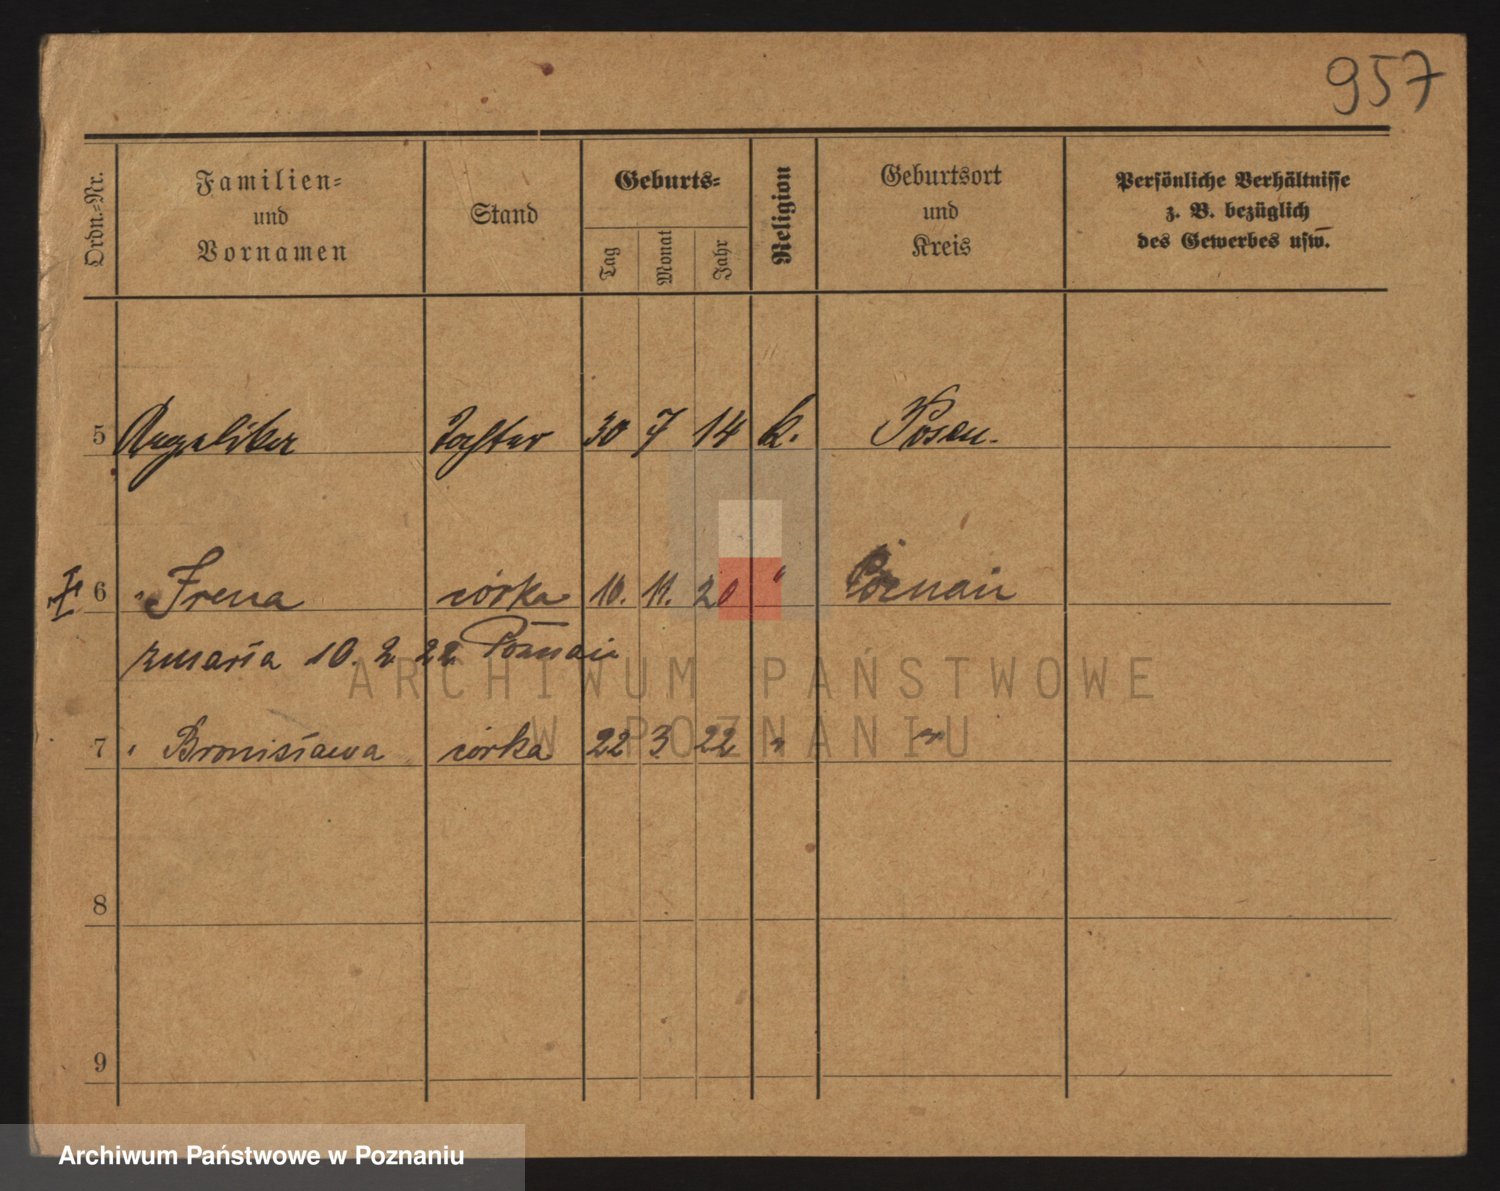 957
Ordn.-Nr.
Familien- und Vornamen
Stand
Geburts-
Tag
Monat
Jahr
Religion
Geburtsort und Kreis
Persönliche Verhältnisse
z. B. bezüglich
des Gewerbes usw.
5 Tochter 30 7 14 k. Posen.
6 " Irena córka 10. 11. 20 " Poznań
zmarła 10. 2 22 Poznań
7 " Bronisława córka 22 3 22 " "
8
9
ARCHIWUM PAŃSTWOWE
W POZNANIU
Archiwum Państwowe w Poznaniu